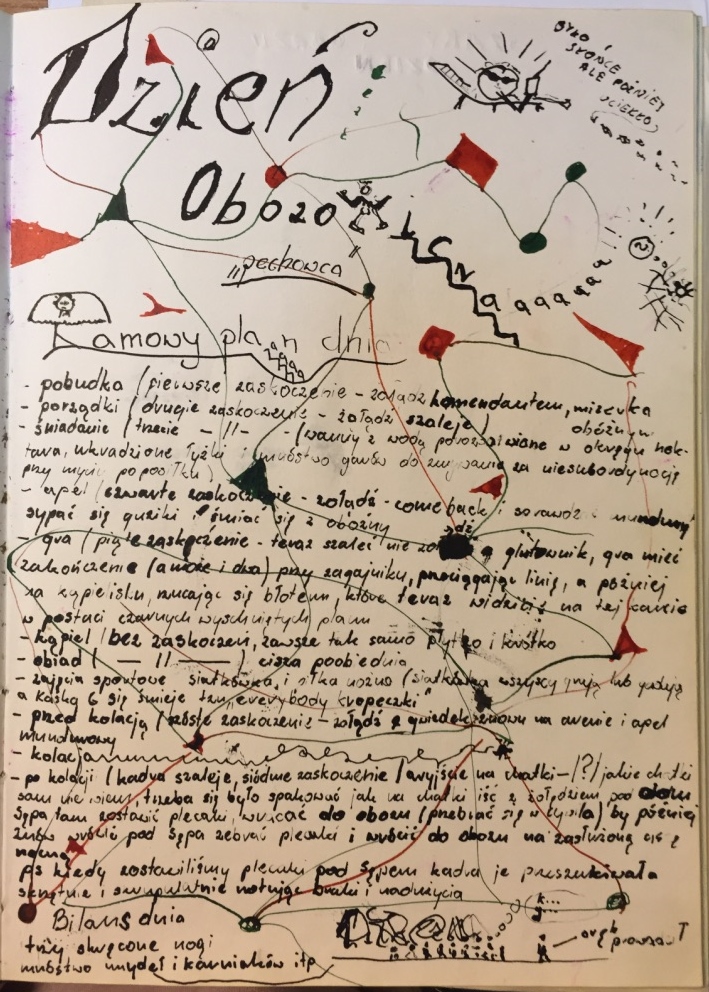 Dzień
BYŁO
SŁOŃCE
ALE PÓŹNIEJ
UCIEKŁO
Obozo
Ramowy plan dnia
- pobudka (pierwsze zaskoczenie - żołądź komendantem, mizerka
- porządki (drugie zaskoczenie - żołądź szaleje) obóźnym
- śniadanie (trzecie - 11 - (wanny z wodą w okręgu nek-
tara, wkradzione łyżki i mnóstwo garów do zmywania za niesubordynację
przy myciu po posiłku)
- apel (czwarte zaskoczenie - żołądź - comeback i sprawdź mundury
sypać się guziki i śmiać się z oboźny
- gra (piąte zaskoczenie - teraz szaleć nie żołądź a glutownik, gra mieć
zakończenie (a może i dwa) przy zagajniku, przeciągając linię, a później
na kąpielisku, rzucając się błotem, które teraz widzicie na tej kartce
w postaci czarnych wyschniętych plam
- kąpiel (bez zaskoczeń, zawsze tak samo płytko i krótko
- obiad ( - 11 - ) cisza poobiednia
- zajęcia sportowe siatkówka, i piłka nożna (siatkówka wszyscy grają lub
a kaśka G się śmieje tzn "everybody kropeczki"
- przed kolacją (szóste zaskoczenie - żołądź z na arenie i apel
mundurowy
- kolacja
- po kolacji (kadra szaleje, siódme zaskoczenie (wyjście na chatki - (?) jakie chatki
sam nie wiem, trzeba się było spakować jak na chatki iść z żołędziem pod dom
Sępa tam zostawić plecaki, wrócać do obozu (przebrać się) by później
znów wrócić pod Sępa zebrać plecaki i wrócić do obozu na zasłużoną
nocną
ps kiedy zostawiliśmy plecaki pod Sępem kadra je przeszukiwała
skrzętnie i skrupulatnie notując braki i nadużycia
Bilans dnia
trzy skręcone nogi
mnóstwo mydeł i karniaków itp
k...